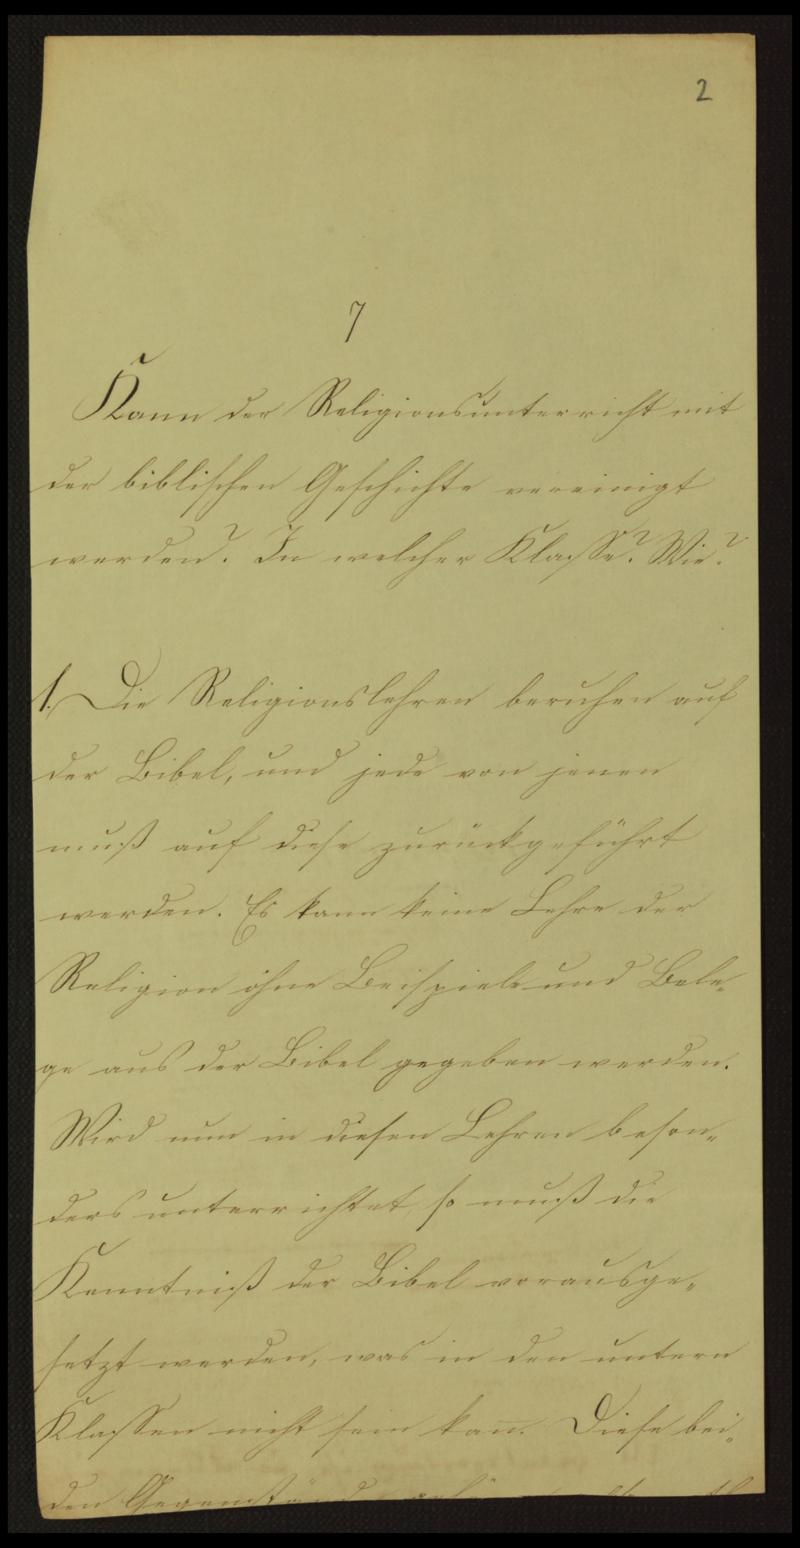 2
7
Kann der Religionsunterricht mit
der biblischen Geschichte vereinigt
werden? In welcher Klasse? Wie?
1. Die Religionslehren beruhen auf
der Bibel, und jede von jenen
muß auf diese zurückgeführt
werden. Es kann keine Lehre der
Religion ohne Beispiele und Bele-
ge aus der Bibel gegeben werden.
Wird nun in diesen Lehren beson-
ders unterrichtet, so muß die
Kenntniß der Bibel vorausge-
setzt werden, was in den untern
Klassen nicht sein kann. Diese bei-
den Gegenstände